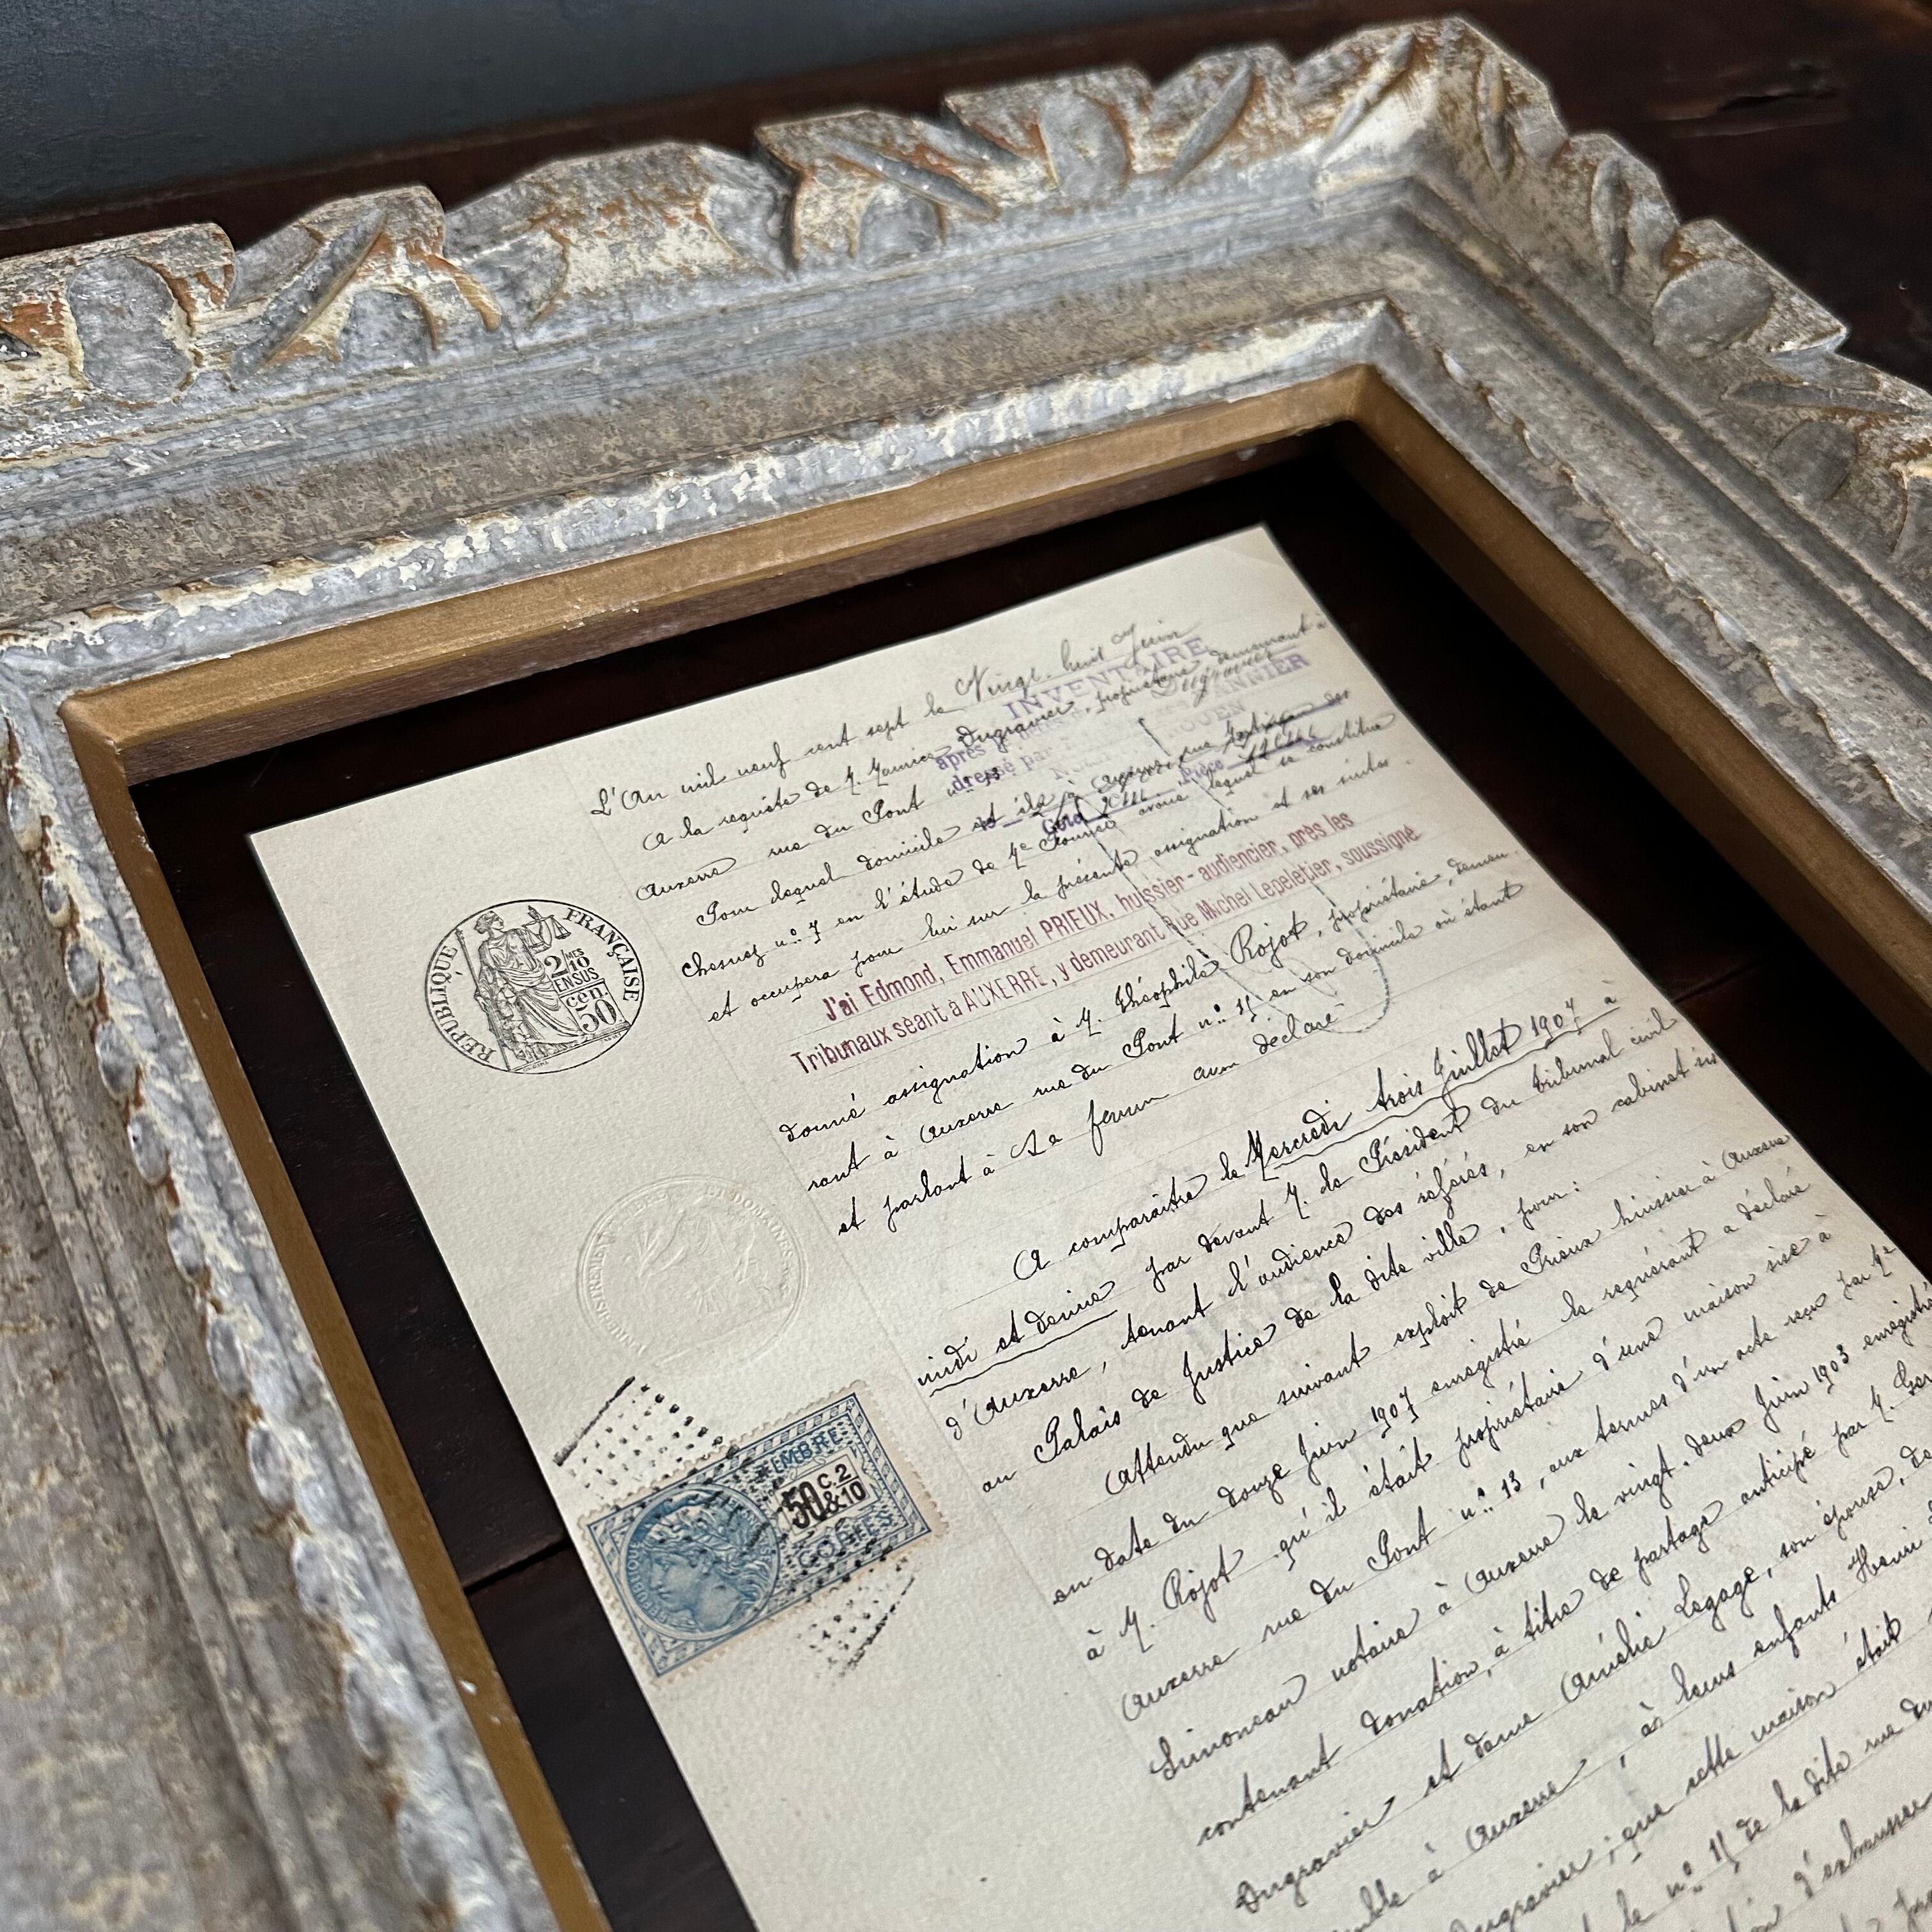 L'An mil neuf cent sept le Vingt-huit Juin
A la requête de M. Maurice Dugravier, propriétaire demeurant à
Auxerre rue du Pont
Pour lequel domicile est élu à Auxerre, rue des
en l'étude de Me avoué lequel se constitue
et occupera pour lui sur la présente assignation et ses suites.
INVENTAIRE
après
dressé par
Cote
Pièce
J'ai Edmond, Emmanuel PRIEUX, huissier-audiencier, près les
Tribunaux séant à AUXERRE, y demeurant Rue Michel Lepeletier, soussigné
donné assignation à M. Théophile Rojot, propriétaire, demeu-
rant à Auxerre rue du Pont n° 11 en son domicile où étant
et parlant à Sa femme ainsi déclaré
A comparaître le Mercredi trois Juillet 1907 à
midi et demie par devant M. le Président du tribunal civil
d'Auxerre, tenant l'audience des référés, en son cabinet sis
au Palais de Justice de la dite ville, pour:
Attendu que suivant exploit de Prieux huissier à Auxerre
en date du douze Juin 1907 enregistré le requérant a déclaré
à M. Rojot qu'il était propriétaire d'une maison sise à
Auxerre rue du Pont n° 13, aux termes d'un acte reçu par Me
Simoneau notaire à Auxerre le vingt-deux Juin 1903 enregistré
contenant donation, à titre de partage anticipé par M.
Dugravier et dame Amélie Legage, son épouse,
à Auxerre, à leurs enfants Henri
Dugravier; que cette maison était
le n° 11 de la dite rue du
d'exhausser
RÉPUBLIQUE FRANÇAISE
2/10 MES
EN SUS
50 cen
ENREGISTREMENT ET DOMAINES
TIMBRE
50 c. 2
&10
COPIES